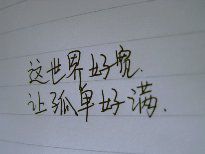 这世界好宽.
让孤单好满.